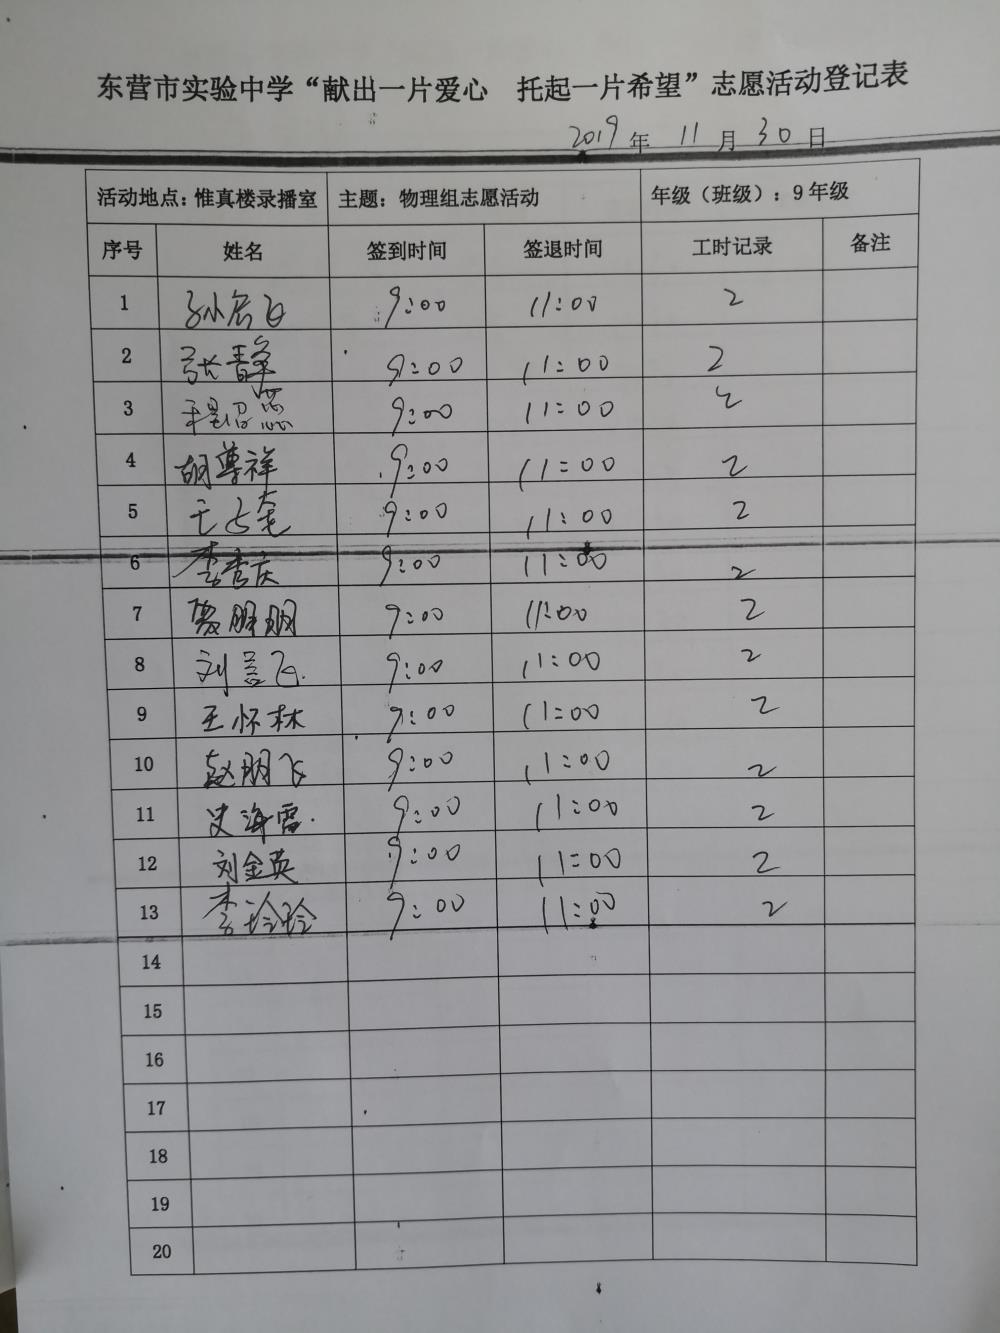 东营市实验中学“献出一片爱心 托起一片希望”志愿活动登记表
2019 年 11 月 30 日
活动地点：惟真楼录播室 主题：物理组志愿活动 年级（班级）：9 年级
序号 姓名 签到时间 签退时间 工时记录 备注
1 9:00 11:00 2
2 张静 9:00 11:00 2
3 9:00 11:00 2
4 胡尊祥 9:00 11:00 2
5 9:00 11:00 2
6 李秀庆 9:00 11:00 2
7 9:00 11:00 2
8 刘言飞 9:00 11:00 2
9 王怀林 9:00 11:00 2
10 赵朋飞 9:00 11:00 2
11 史海雷 9:00 11:00 2
12 刘金英 9:00 11:00 2
13 李玲玲 9:00 11:00 2
14
15
16
17
18
19
20